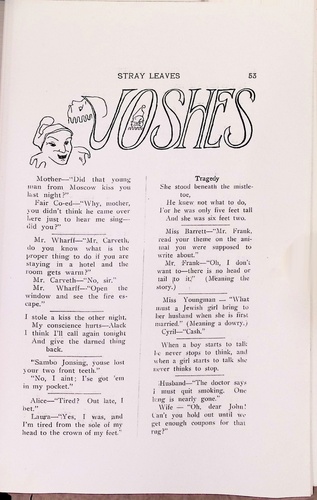 STRAY LEAVES 53
JOSHES
Mother—"Did that young
man from Moscow kiss you
last night?"
Fair Co-ed—"Why, mother,
you didn't think he came over
here just to hear me sing—
did you?"
Mr. Wharff—"Mr. Carveth,
do you know what is the
proper thing to do if you are
staying in a hotel and the
room gets warm?"
Mr. Carveth—"No, sir."
Mr. Wharff—"Open the
window and see the fire es-
cape."
I stole a kiss the other night.
My conscience hurts—Alack
I think I'll call again tonight
And give the darned thing
back.
"Sambo Jonsing, youse lost
your two front teeth."
"No, I aint; I'se got 'em
in my pocket."
Alice—"Tired? Out late, I
bet."
Laura—"Yes, I was, and
I'm tired from the sole of my
head to the crown of my feet."
Tragedy
She stood beneath the mistle-
toe,
He knew not what to do,
For he was only five feet tall
And she was six feet two.
Miss Barrett—"Mr. Frank,
read your theme on the ani-
mal you were supposed to
write about."
Mr. Frank—"Oh, I don't
want to—there is no head or
tail to it." (Meaning the
story.)
Miss Youngman — "What
must a Jewish girl bring to
her husband when she is first
married." (Meaning a dowry.)
Cyril—"Cash."
When a boy starts to talk
he never stops to think, and
when a girl starts to talk she
never thinks to stop.
Husband—"The doctor says
I must quit smoking. One
lung is nearly gone."
Wife — "Oh, dear John!
Can't you hold out until we
get enough coupons for that
rug?"